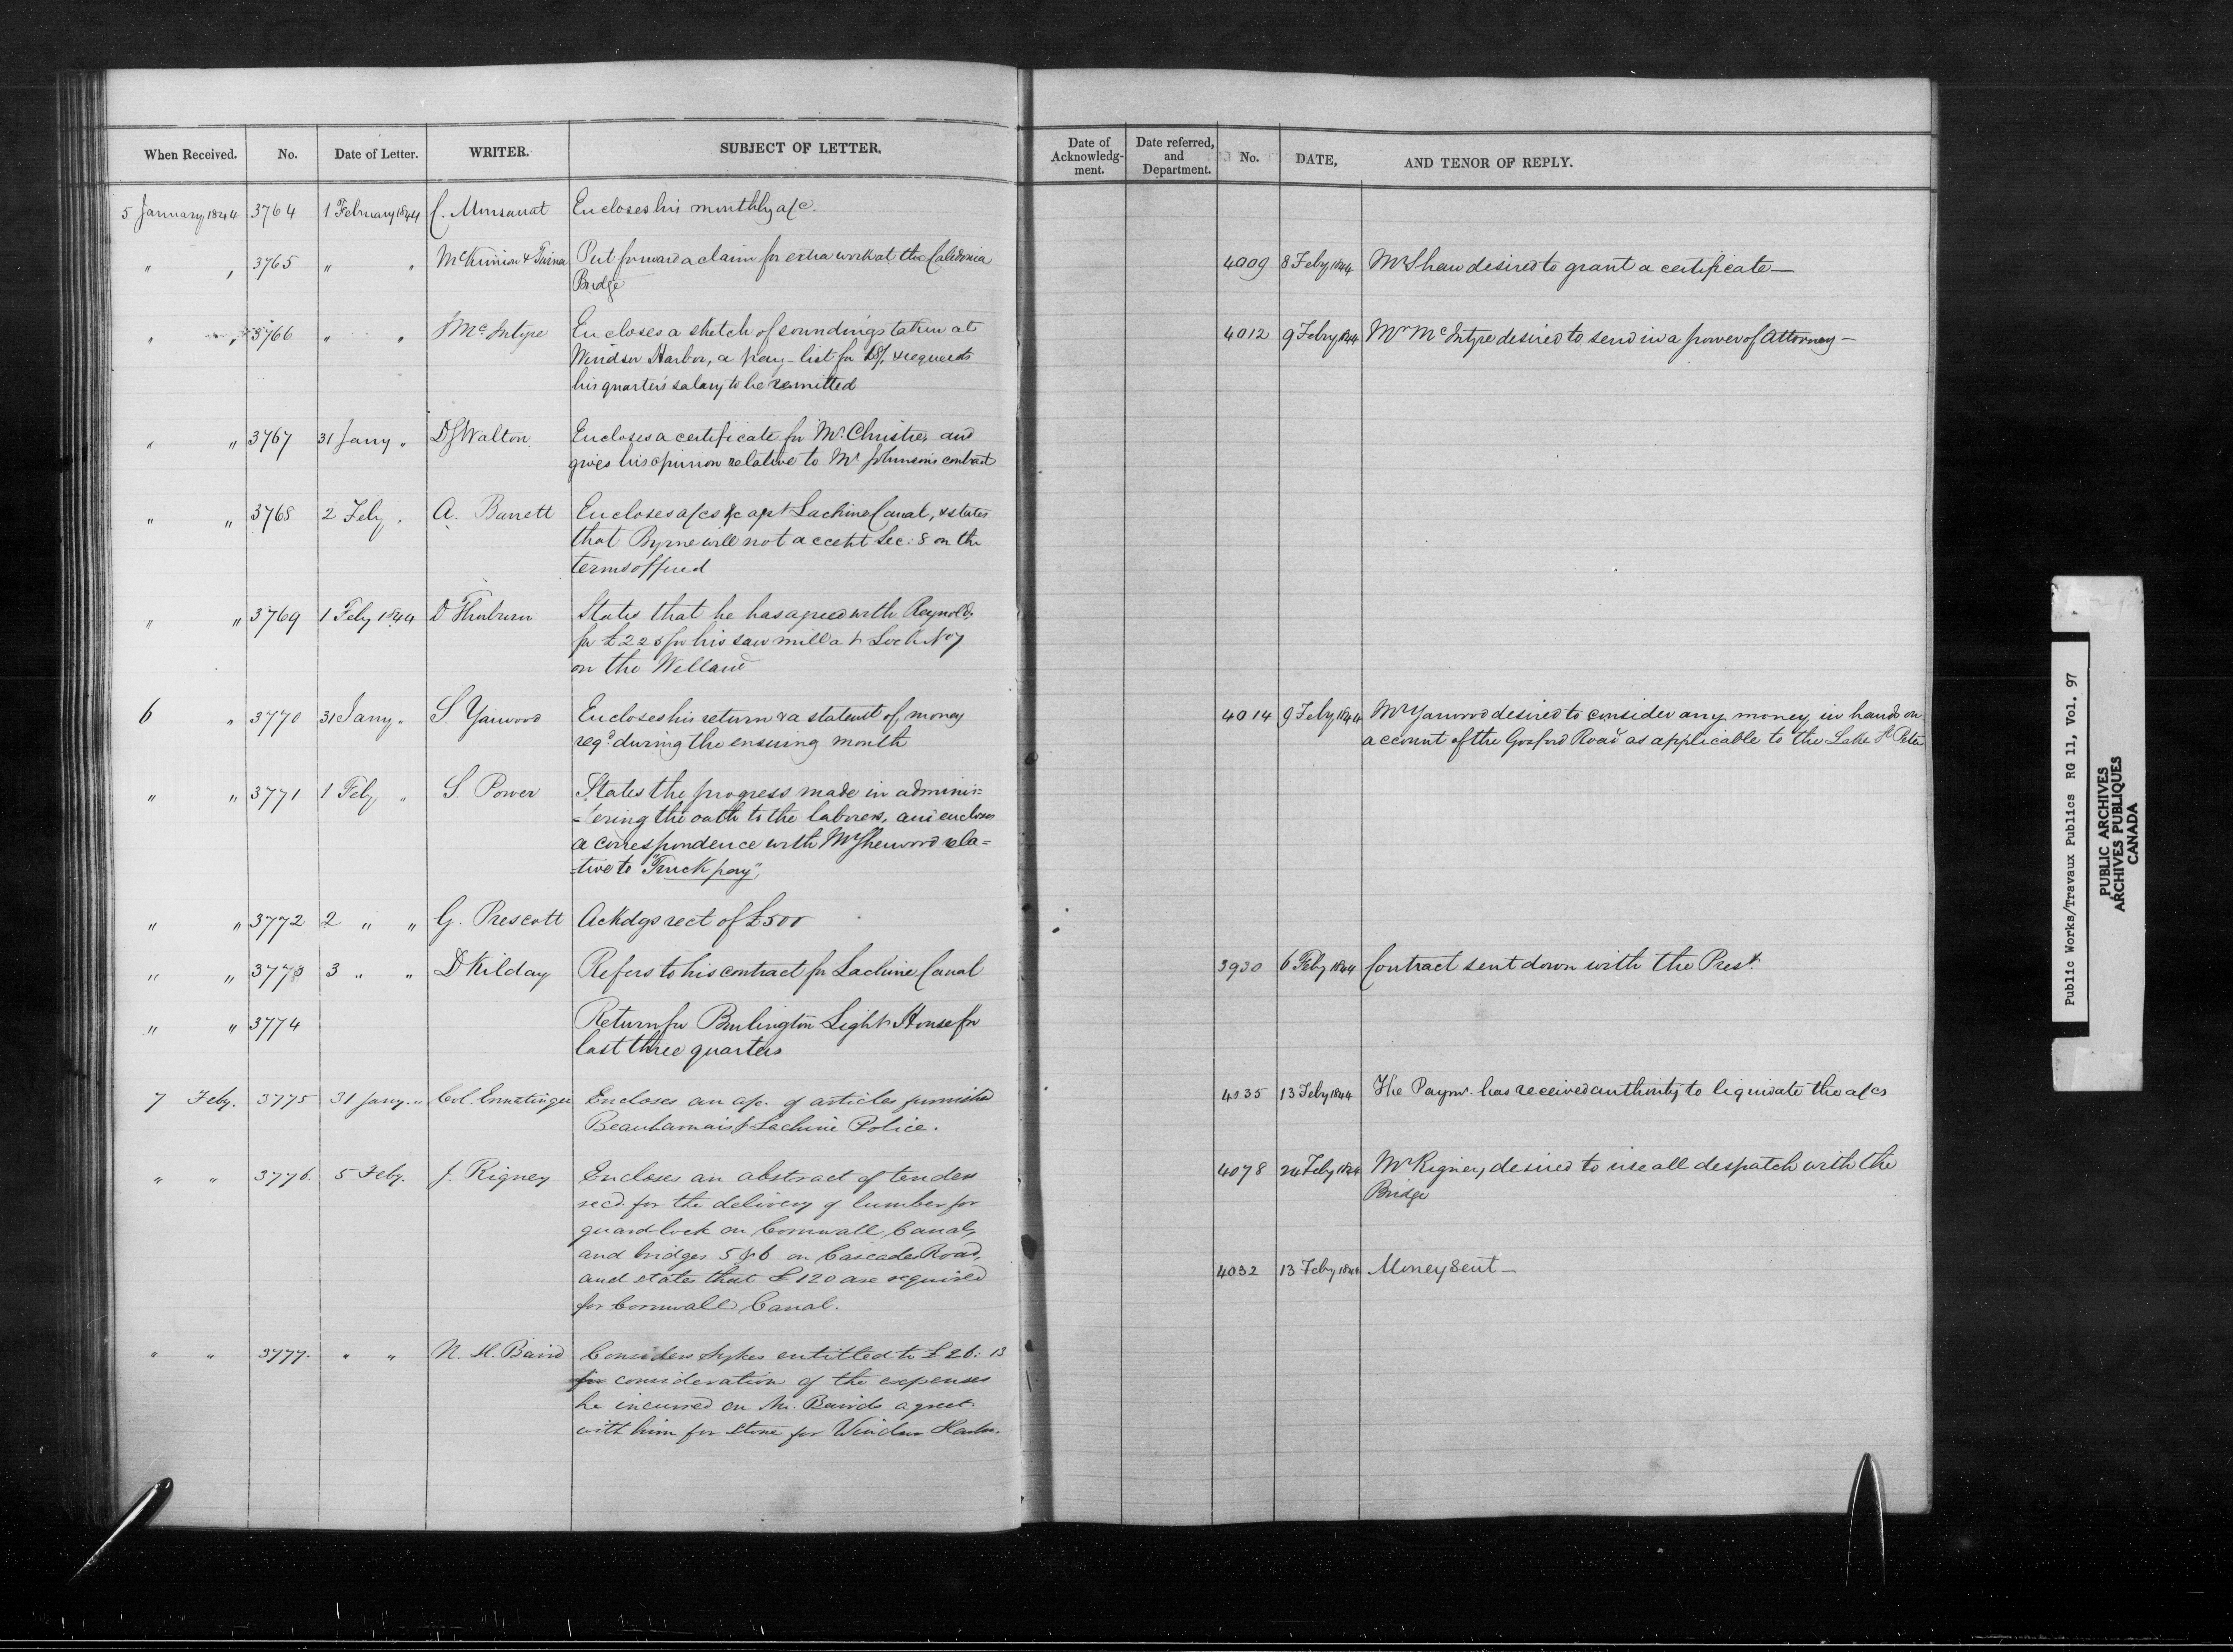 When Received. No. Date of Letter. WRITER. SUBJECT OF LETTER.
5 January, 1844 3764 1 February 1844 C. Monsarrat Encloses his monthly a/c.
" , 3765 " " McKinnion & Put forward a claim for extra work at the Caledonia
Bridge
" " 3766 " " J McIntyre Encloses a sketch of soundings taken at
Windsor Harbor, a pay-list for £8/, & requests
his quarter's salary to be remitted
" " 3767 31 Jany " D S Walton Encloses a certificate for Mr. Christie, and
gives his opinion relative to Mr Johnson's contract
" " 3768 2 Feby " A. Barrett Encloses a/cs &c agst Lachine Canal, & states
that Byrne will not accept Sec: 8 on the
terms offered
" " 3769 1 Feby 1844 D Thorburn States that he has agreed with Reynolds
for £225 for his saw mill at Lock No 7
on the Welland
6 " 3770 31 Jany " S. Yarwood Encloses his return & a statemt of money
reqd during the ensuing month
" " 3771 1 Feby " S. Power States the progress made in adminis=
=tering the oath to the laborers, and encloses
a correspondence with Mr Sherwood rela=
=tive to "Truck pay",
" " 3772 2 " " G. Prescott Ackdgs rect of £500
" " 3773 3 " " D Kilday Refers to his contract for Lachine Canal
" " 3774 Return for Burlington Light House for
last three quarters
7 Feby. 3775 31 Jany. " Col. Ermatinger Encloses an a/c. of articles furnished
Beauharnais & Lachine Police.
" " 3776. 5 Feby. J. Rigney Encloses an abstract of tenders
recd. for the delivery of lumber for
guard lock on Cornwall Canal,
and bridges 5 & 6 on Cascades Road,
and states that £120 are required
for Cornwall Canal.
" " 3777. " " N. H. Baird Considers Sykes entitled to £26: 13
for consideration of the expenses
he incurred on Mr. Baird's agreet.
with him for stone for Windsor Harbr.
Date of Acknowledg-ment. Date referred, and Department. No. DATE, AND TENOR OF REPLY.
4009 8 Feby 1844 Mr Shaw desired to grant a certificate—
4012 9 Febry 1844 Mr McIntyre desired to send in a power of Attorney—
4014 9 Feby 1844 Mr Yarwood desired to consider any money in hands on
account of the Gosford Road as applicable to the Lake St Peter
3930 6 Feby 1844 Contract sent down with the Prest.
4035 13 Feby 1844 The Paymr. has received authority to liquidate the a/cs
4078 24 Feby 1844 Mr Rigney desired to use all despatch with the
Bridge
4032 13 Feby 1844 Money Sent—
Public Works/Travaux Publics RG 11, Vol. 97
PUBLIC ARCHIVES
ARCHIVES PUBLIQUES
CANADA